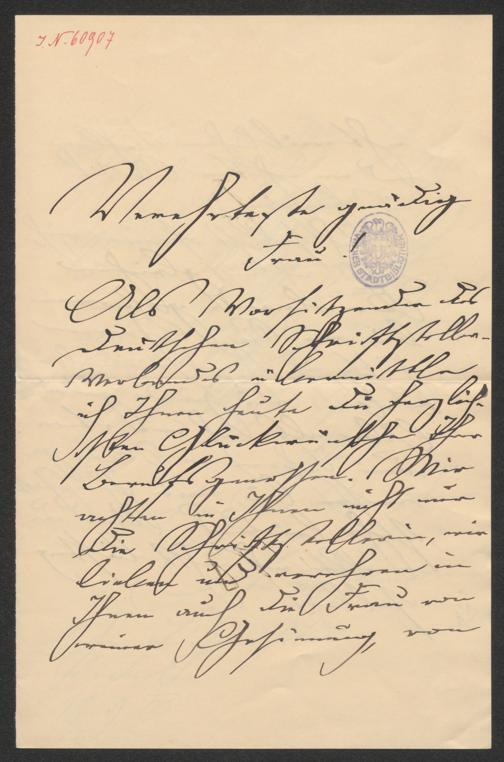 J.N. 60907
Verehrteste gnädige
Frau!
WIENER STADTBIBLIOTHEK
Als Vorsitzender des
deutschen Schriftsteller-
Verbandes übermittle
ich Ihnen heute die herzlich-
sten Glückwünsche Ihrer
Berufsgenossen. Wir
achten in Ihnen nicht nur
die Schriftstellerin, wir
lieben und verehren in
Ihnen auch die Frau von
reiner Gesinnung, von